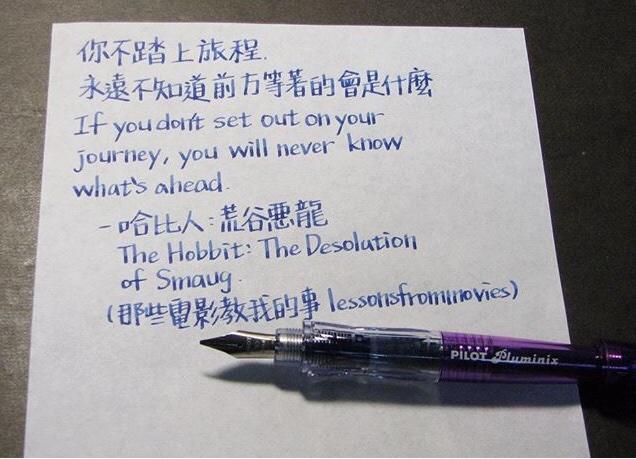 你不踏上旅程.
永遠不知道前方等著的會是什麼
If you don't set out on your
journey, you will never know
what's ahead.
- 哈比人:荒谷惡龍
The Hobbit: The Desolation
of Smaug.
(那些電影教我的事 lessonsfrommovies)
PILOT Pluminix